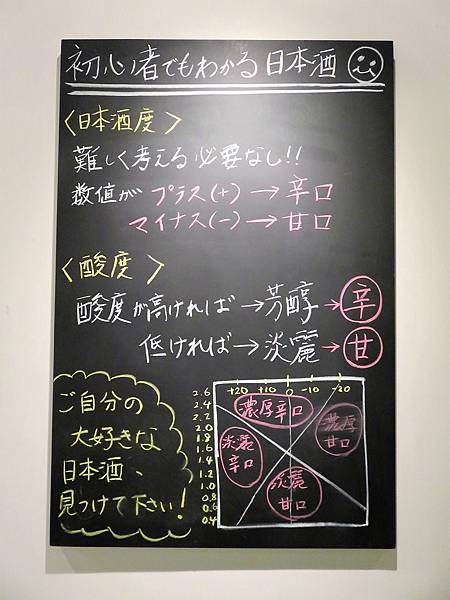 初心者でもわかる日本酒
〈日本酒度〉
難しく考える必要なし!!
数値が プラス(+)→辛口
マイナス(-)→甘口
〈酸度〉
酸度が高ければ→芳醇→辛
低ければ→淡麗→甘
ご自分の
大好きな
日本酒、
見つけて下さい!
+20 +10 0 -10 -20
2.6
2.4
2.2
2.0
1.8
1.6
1.4
1.2
1.0
0.8
0.6
0.4
濃厚辛口
淡麗
辛口
濃厚
甘口
淡麗
甘口